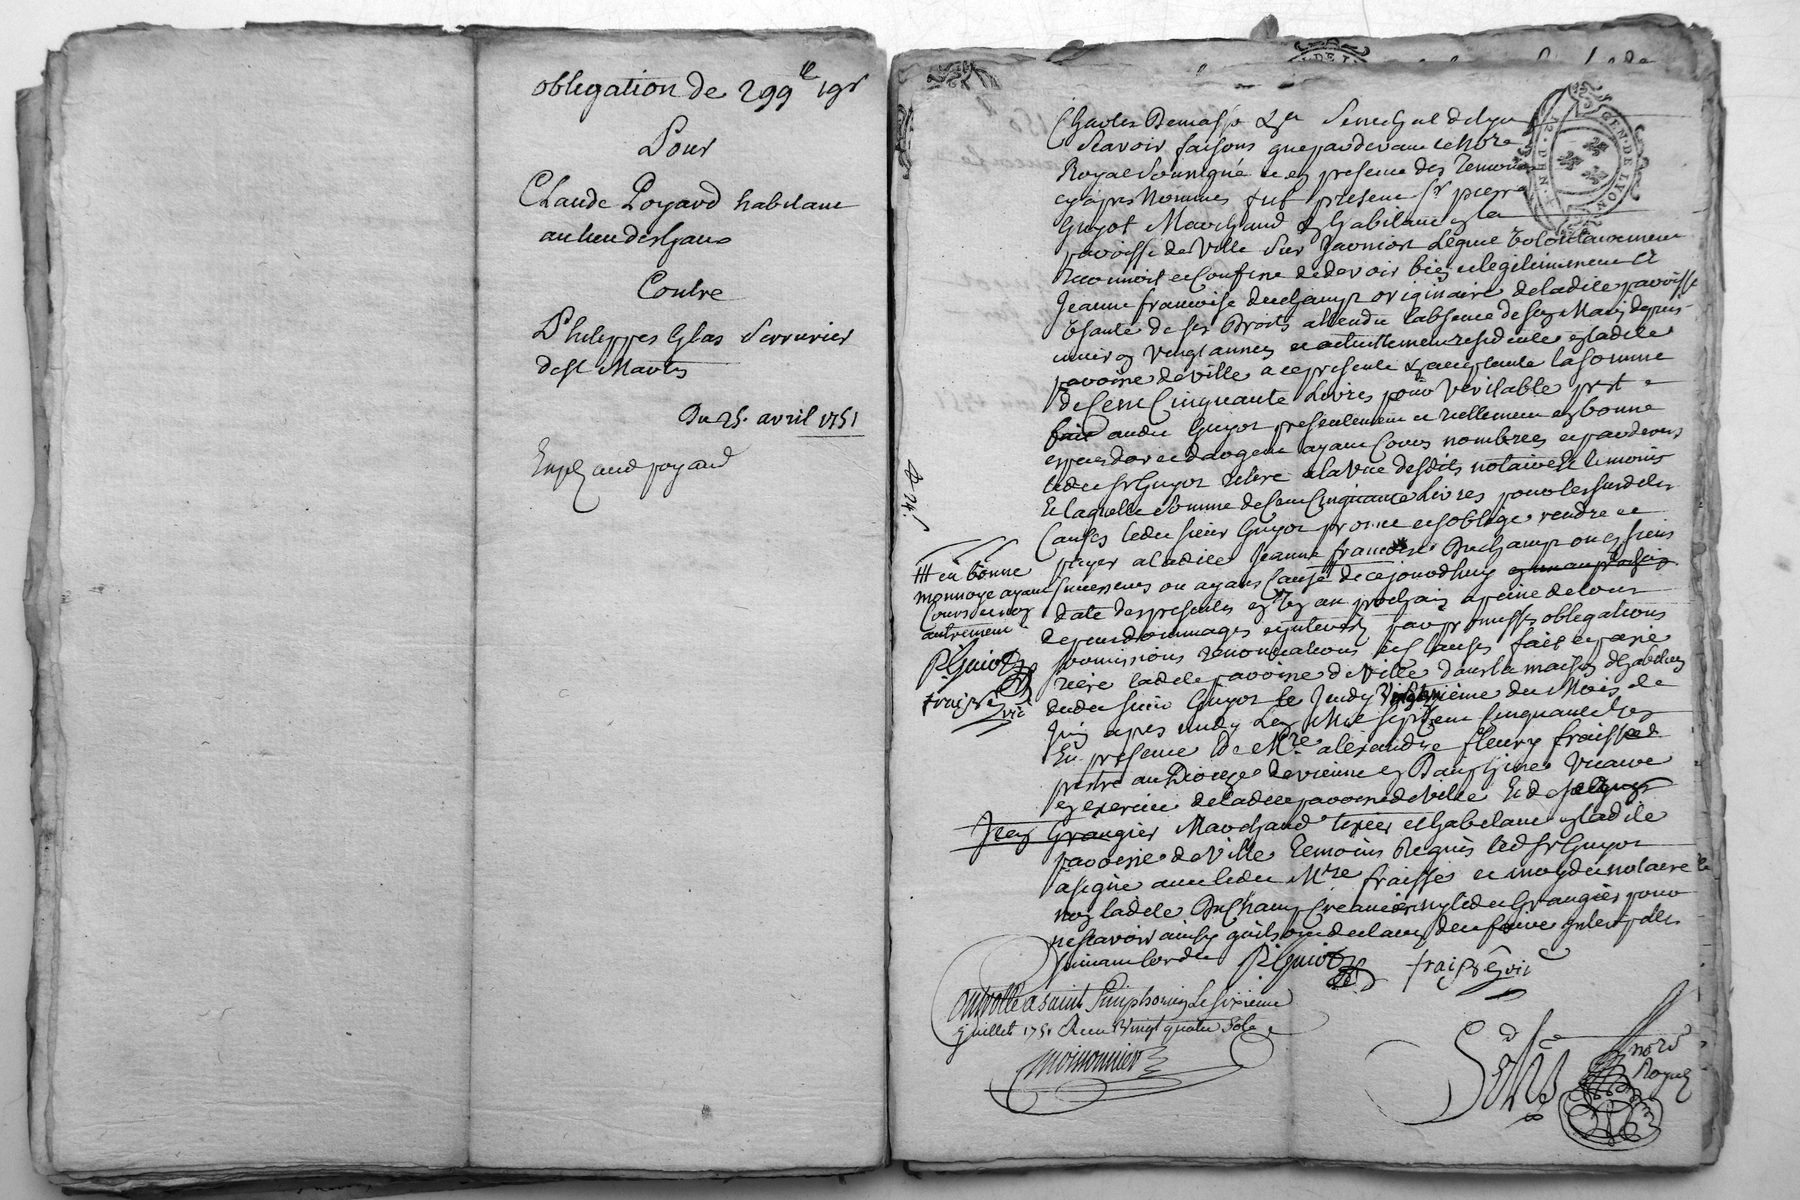 obligation de 299 ₶ 19 s
Pour
Claude Poyard habitant
au lieu des hayes
Contre
Philippes Glas Serrurier
de St Martin
Du 25. avril 1751
Exp en aud poyard
GEN. DE LYON
Charles Demasso Senechal de Lyon
Scavoir faisons que pardevant le No.re
Royal Soussigné et en presence des Temoins
cy apres Nommés fut present Sr. pierre
Guyot Marchand & habitant en la
paroisse de Ville Sur Jarniost Lequel volontairement
Reconnoit et Confesse de devoir bien et legitimement a
Jeanne francoise duchamp originaire de ladite paroisse
Usante de ses Droits attendu l'absence de son Mary depuis
environ vingt années et actuellement residente en ladite
paroisse de ville a ce presente & acceptante la somme
de Cent Cinquante Livres pour veritable prest
fait audit Guyot presentement et reellement en bonne
especes d'or et d'argent ayant Cours nombrées et par devers
ledit Sr Guyot retiré a la vue desdits notaire et temoins
Et laquelle somme de Cent Cinquante Livres pour les susdites
Causes ledit sieur Guyot promet et s'oblige rendre et
payer a ladite Jeanne francoise Duchamp ou es siens
successeurs ou ayans Cause de ce jourdhuy en un an prochain
date des presentes en un an prochain a peine de tous
depens dommages interests par promesses obligations
soumissions renonciations et clauses fait et passé
rière ladite paroisse de Ville dans la maison d'habitation
dudit sieur Guyot le Jeudy vingtquatrième du Mois de
Juin apres midy L'an Mil sept Cent Cinquante et un
En presence de M.re alexandre fleury fraisse
prestre au Dioceze de vienne en Dauphiné Vicaire
en exercice de ladite paroisse de Ville Et de
Jean Grangier Marchand tixier et habitant en ladite
paroisse de Ville temoins Requis led Sr Guyot
a signé avec ledit M.re fraisse et moydit notaire
non ladite Duchamp Creancière ny ledit Grangier pour
ne scavoir ainsy qu'ils ont declaré de ce faire interpellés
suivant lordce P. Guiot fraisse vic
A 24 s
et en bonne
monnoye ayant
Cours et non
autrement
P. Guiot
fraisse
vic
Controllé a saint Simphorien Le sixieme
Juillet 1751 Recu vingt quatre Sols
moissonnier
no.re
Royal